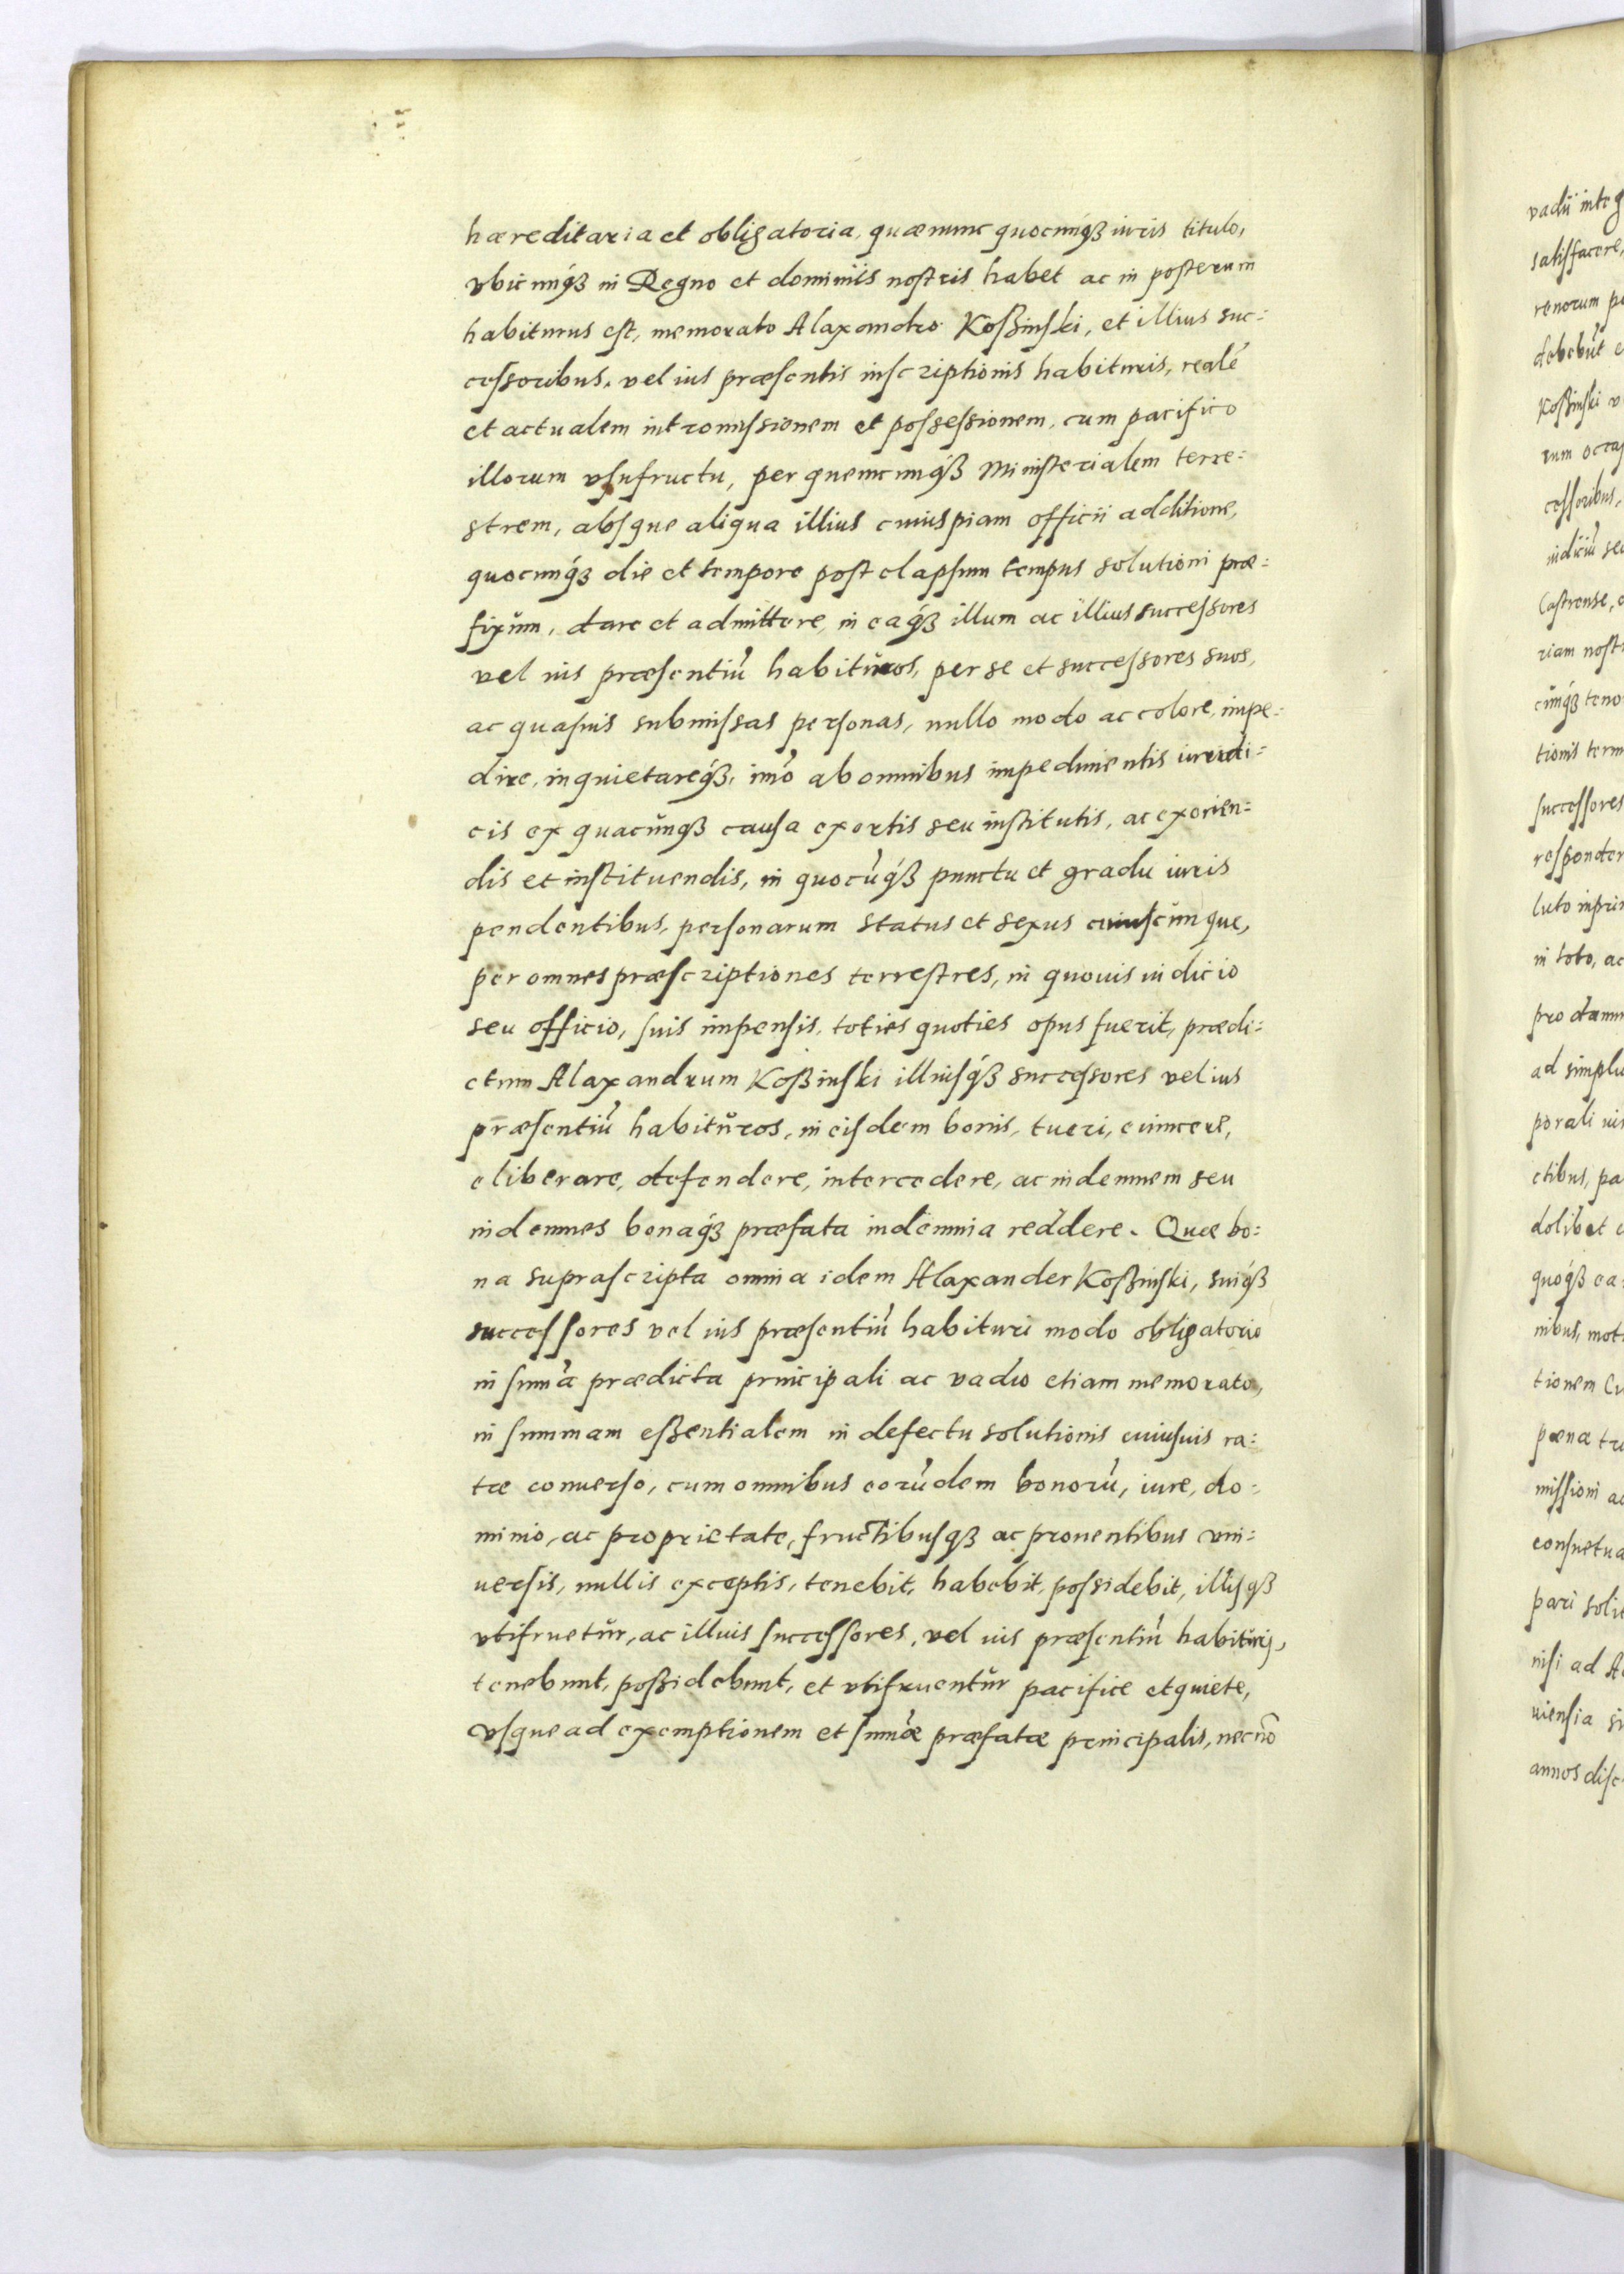 hæreditaria et obligatoria, quæ nunc quocunq́ꝫ iuris titulo,
vbicunq́ꝫ in Regno et dominiis nostris habet ac in posterum
habiturus est, memorato Alaxandro Koßinski, et illius suc:
cessoribus, vel ius præsentis inscriptionis habituris, realẽ
et actualem intromissionem et possessionem, cum pacifico
illorum vsufructu, per quemcunq́ꝫ Ministerialem terre:
strem, absque aliqua illius cuiuspiam officii additione,
quocunq́ꝫ die et tempore post elapsum tempus solutioni præ:
fixum, dare et admittere, in eaq́ꝫ illum ac illius successores
vel ius præsentiũ habitũros, per se et successores suos,
ac quasuis submissas personas, nullo modo ac colore, impe:
dire, inquietareq́ꝫ, imò ab omnibus impedimentis iuridi:
cis ex quacunqꝫ causa exortis seu institutis, ac exorien:
dis et instituendis, in quocũq́ꝫ punctu et gradu iuris
pendentibus, personarum status et sexus cuiuscunque,
per omnes præscriptiones terrestres, in quouis iudicio
seu officio, suis impensis, toties quoties opus fuerit, prædi:
ctum Alaxandrum Koßinski illiusq́ꝫ successores vel ius
præsentiũ habitŭros, in eisdem bonis, tueri, euincere,
eliberare, defendere, intercedere, ac indemnem seu
indemnes bonaq́ꝫ præfata indemnia reddere. Quæ bo:
na suprascripta omnia idem Alaxander Koßinski, suiq́ꝫ
successores vel ius præsentiũ habituri modo obligatorio
in sum̃a prædicta principali ac vadio etiam memorato,
in summam eßentialem in defectu solutionis cuiusuis ra:
tæ conuerso, cum omnibus eorũdem bonorũ, iure, do:
minio, ac proprietate, fructibusqꝫ ac prouentibus vni:
uersis, nullis exceptis, tenebit, habebit, possidebit, illisqꝫ
vtifruetŭr, ac illius successores, vel ius præsentiũ habituri,
tenebunt, poßidebunt, et vtifruentŭr pacifice et quiete,
vsque ad exemptionem et sum̃æ præfatæ principalis, necnõ